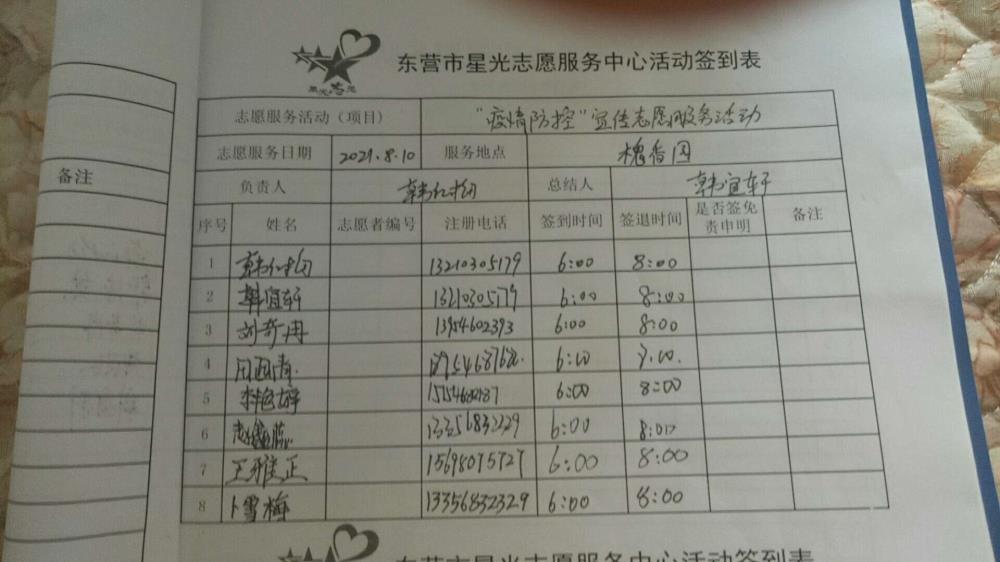 东营市星光志愿服务中心活动签到表
志愿服务活动（项目） "疫情防控"宣传志愿服务活动
志愿服务日期 2021.8.10 服务地点 槐香园
负责人 总结人 韩宜轩
序号 姓名 志愿者编号 注册电话 签到时间 签退时间 是否签免责申明 备注
1 13210305179 6:00 8:00
2 韩宜轩 13210305179 6:00 8:00
3 刘奇冉 13954602393 6:00 8:00
4 6:00
5 6:00 8:00
6 13356832229 6:00 8:00
7 王雅正 15698075727 6:00 8:00
8 卜雪梅 13356832329 6:00 8:00
备注
东营市星光志愿服务中心活动签到表